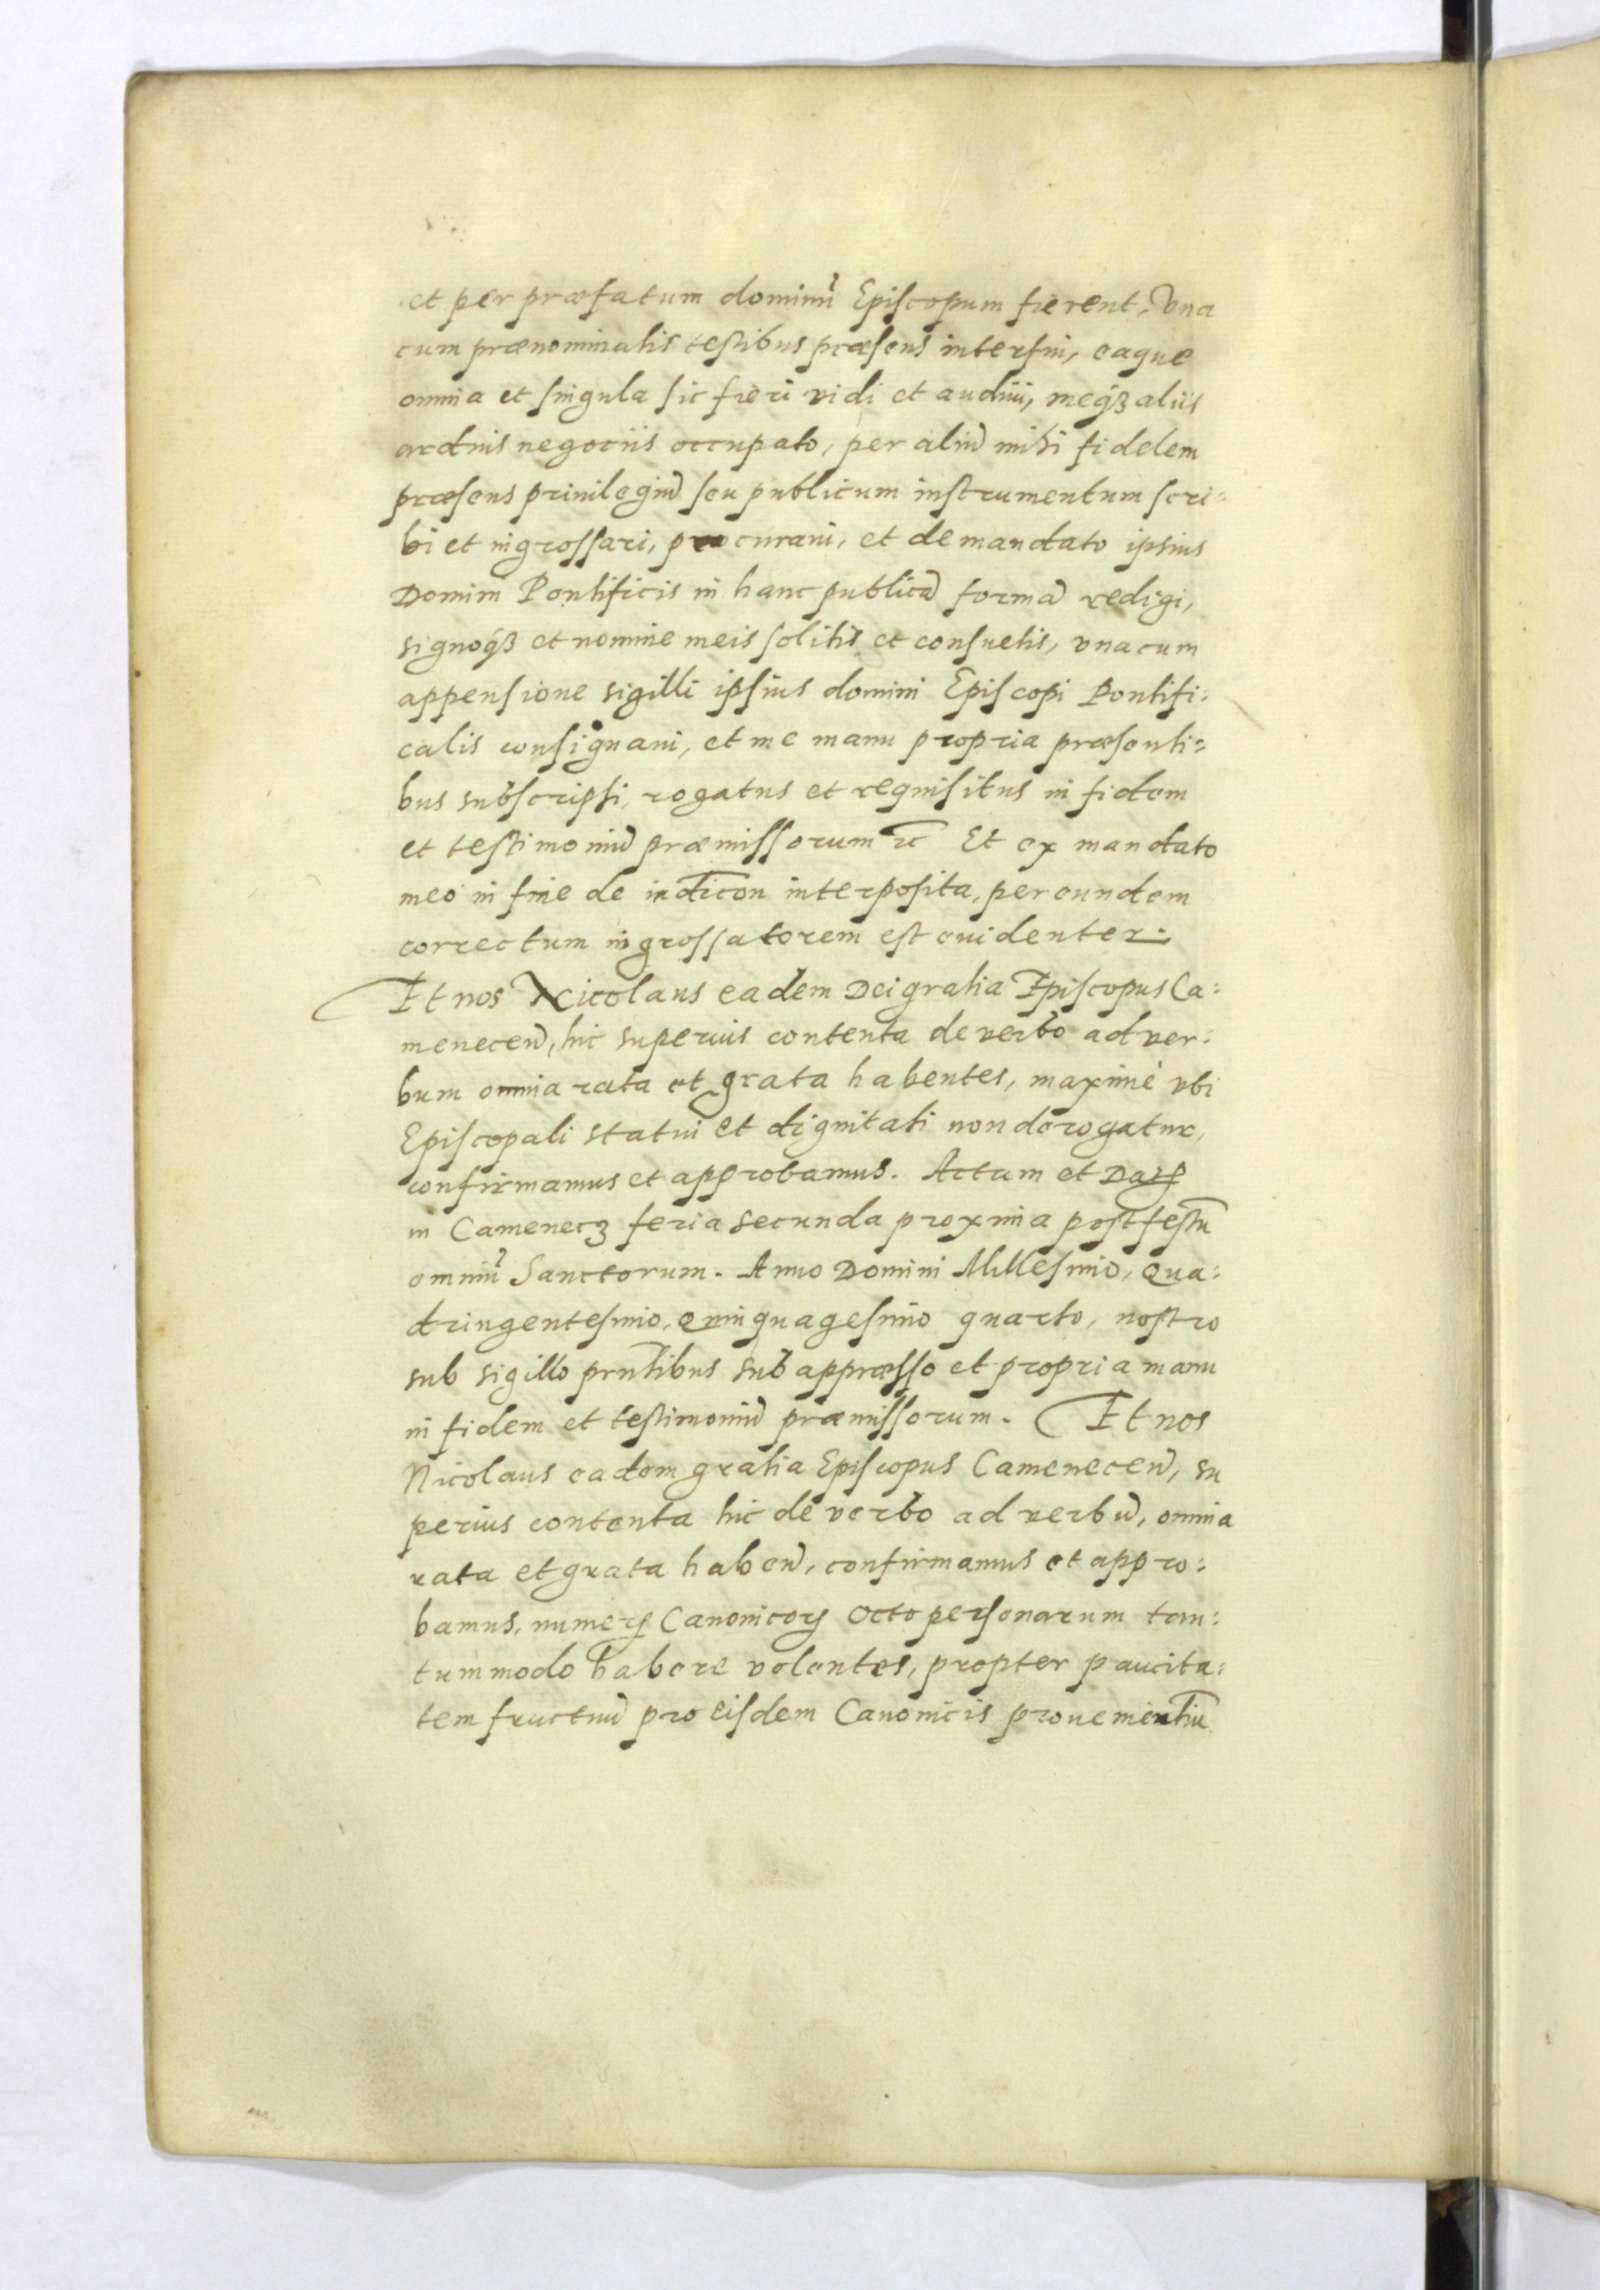 et per præfatum dominũ Episcopum fierent, Vna
cum prænominatis testibus præsens interfui, eaque
omnia et singula sic fieri vidi et audiui, meq́ꝫ aliis
arduis negociis occupato, per aliũ mihi fidelem
præsens priuilegiũ seu publicum instrumentum scri:
bi et ingrossari, procuraui, et de mandato ipsius
Domini Pontificis in hanc publicã formã redigi,
signoq́ꝫ et nomine meis solitis et consuetis, vna cum
appensione sigilli ipsius domini Episcopi Pontifi:
calis consignaui, et me manu propria præsenti:
bus subscripsi, rogatus et requisitus in fidem
et testimoniũ præmissorum ꝛc̃ Et ex mandato
meo in fine de indiction interposita, per eundem
correctum ingrossatorem est euidenter.
Et nos Nicolaus eadem Dei gratia Episcopus Ca:
meneceñ, hic superius contenta de verbo ad ver:
bum omnia rata et grata habentes, maximè vbi
Episcopali statui et dignitati non derogatur,
confirmamus et approbamus. Actum et Datꝭ
in Camenecz feria secunda proxima post festũ
omniũ Sanctorum. Anno Domini Millesimo, Qua:
dringentesimo, Quinquagesimo quarto, nostro
sub sigillo prñtibus sub appræsso et propria manu
in fidem et testimoniũ præmissorum. Et nos
Nicolaus eadem gratia Episcopus Cameneceñ, su
perius contenta hic de verbo ad verbũ, omnia
rata et grata habeñ, confirmamus et appro:
bamus, numerꝭ Canonicorꝭ octo personarum tan:
tummodo habere volentes, propter paucita:
tem fructuũ pro eisdem Canonicis prouenientiũ